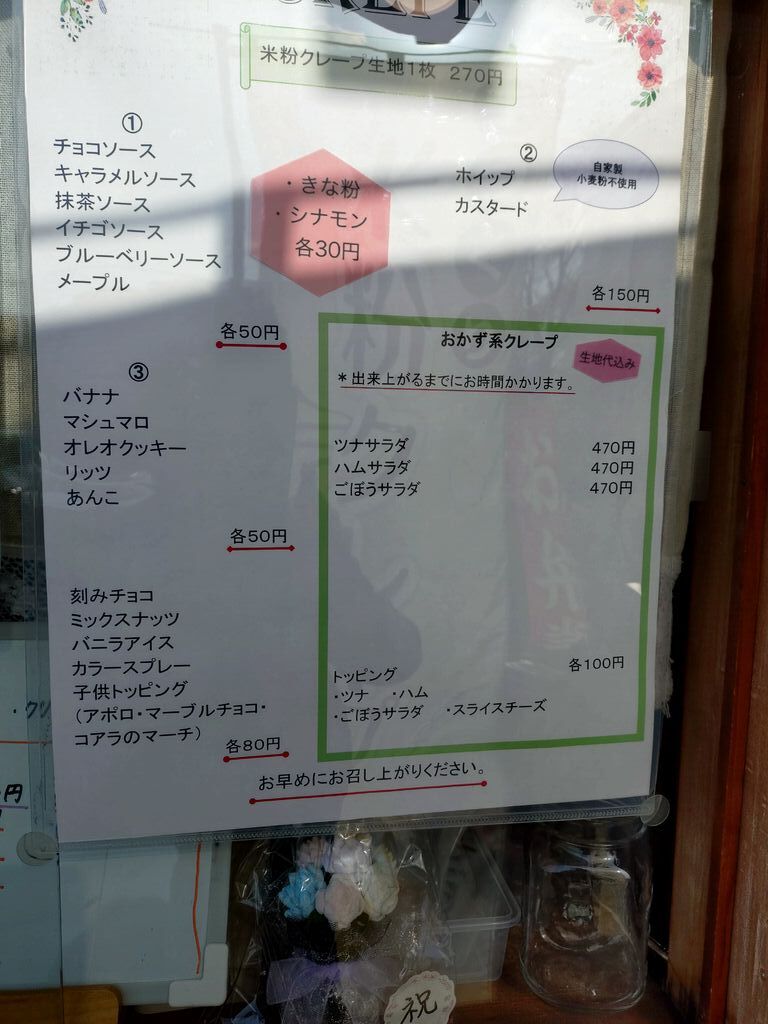 CREPE
米粉クレープ生地1枚 270円
①
チョコソース
キャラメルソース
抹茶ソース
イチゴソース
ブルーベリーソース
メープル
各50円
・きな粉
・シナモン
各30円
②
ホイップ
カスタード
自家製
小麦粉不使用
各150円
③
バナナ
マシュマロ
オレオクッキー
リッツ
あんこ
各50円
刻みチョコ
ミックスナッツ
バニラアイス
カラースプレー
子供トッピング
（アポロ・マーブルチョコ・
コアラのマーチ）
各80円
おかず系クレープ
生地代込み
＊出来上がるまでにお時間かかります。
ツナサラダ 470円
ハムサラダ 470円
ごぼうサラダ 470円
トッピング 各100円
・ツナ ・ハム
・ごぼうサラダ ・スライスチーズ
お早めにお召し上がりください。
円
祝